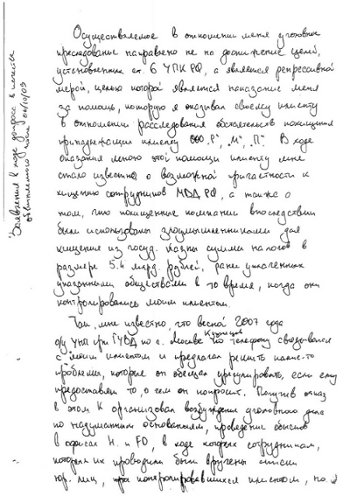 Заявления в ходе допроса в качестве
обвиняемого 14/10/09
Осуществляемое в отношении меня уголовное
преследование направлено не на достижение целей,
установленных ст 6 УПК РФ, а является репрессивной
мерой, целью которой является наказание меня
за помощь, которую я оказывал своему клиенту
в отношении расследования обстоятельств похищения
принадлежащих клиенту ООО "Р", "М", "П". В ходе
оказания мною этой помощи клиенту мне
стало известно о возможной причастности к
хищению сотрудников МВД РФ, а также о
том, что похищенные компании впоследствии
были использованы злоумышленниками для
хищения из госуд. казны суммы налогов в
размере 5.4 млрд. рублей, ранее уплаченных
указанными обществами в то время, когда они
контролировались моим клиентом.
Так, мне известно, что весной 2007 года
о/у УНП при ГУВД по г. Москве Кузнецов по телефону связывался
с моим клиентом и предлагал решить какие-то
проблемы, которые он обещал урегулировать, если ему
предоставят то, о чем он попросит. Получив отказ
в этом К организовал возбуждение уголовного дела
по надуманным основаниям, проведение обысков
в офисах H. и FD, в ходе которых сотрудникам,
которые их проводили были вручены печати
юр. лиц, при контролировавшихся клиентом, по